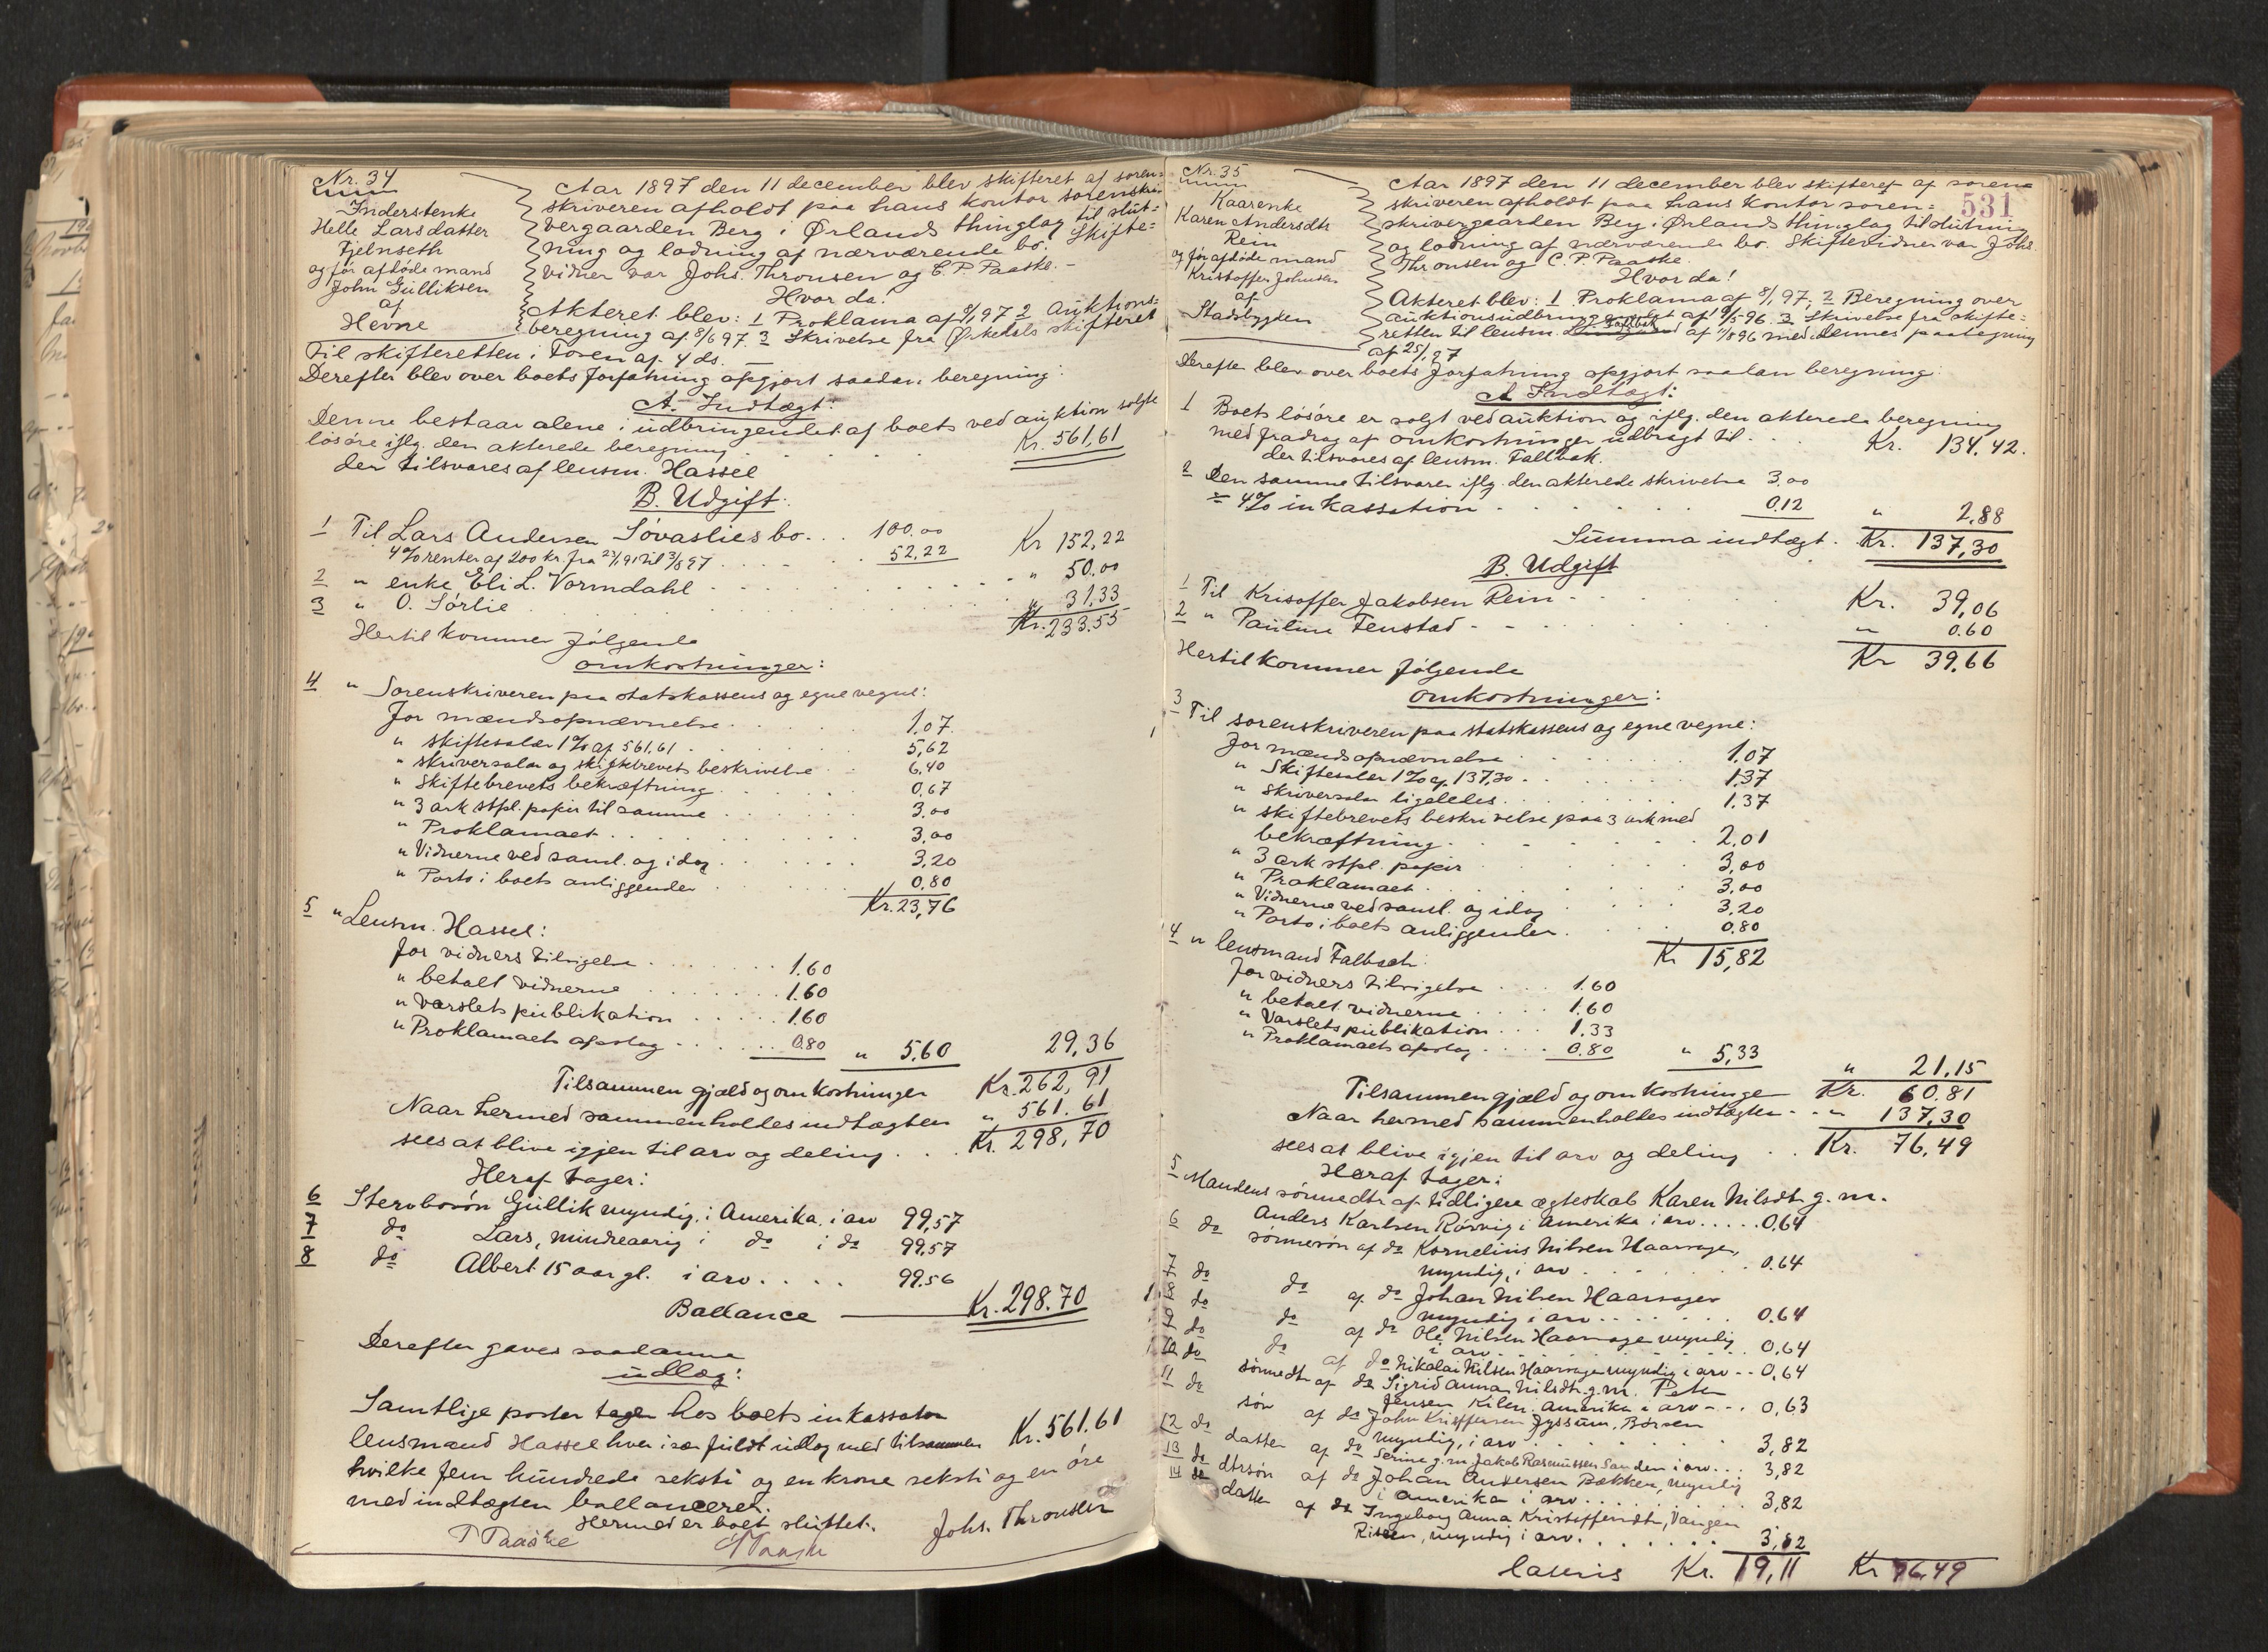 Nr. 34
Inderstenke
Helle Larsdatter
Fjelnseth
og før afdøde mand
John Gulliksen
af
Hevne
Aar 1897 den 11 december blev skifteret af soren=
skriveren afholdt paa hans kontor sorenskri
vergaarden Berg i Ørlands thinglag til slut=
ning og lodning af nærværende bo. Skifte=
vidner var Johs. Thronsen og C. P. Paaske. -
Hvor da!
Akteret blev: 1 Proklama af 8/1 97 2 Auktions=
beregning af 8/6 97 3 Skrivelse fra Ørkedals skifteret
til skifteretten i Fosen af 4 ds.
Derefter blev over boets forfatning opgjort saadan beregning:
A. Indtægt:
Denne bestaar alene i udbringendet af boets ved auktion solgte
løsøre iflg. den akterede beregning . . . Kr. 561,61
der tilsvares af lensm. Hassel
B. Udgift:
1 Til Lars Andersen Søvaslies bo . . . 100.00
4% renter af 200 kr. fra 23/1 91 til 3/8 97 . . . 52,22 Kr 152,22
2 " enke Eli L. Vormdahl . . . " 50.00
3 " O. Sørlie . . . " 31.33
Kr. 233.55
Hertil kommer følgende
omkostninger:
4 " Sorenskriveren paa statskassens og egne vegne:
for mændsopnævnelse . . . 1.07.
" skiftesalær 1% af 561,61 . . . 5,62
" skriversalær og skiftebrevets beskrivelse . . 6.40
" Skiftebrevets bekræftning . . . 0.67
" 3 ark stpl. papir til samme . . . 3.00
" Proklamaet . . . 3,00
" Vidnerne ved saml. og idag . . . 3,20
" Porto i boets anliggender . . . 0.80
Kr. 23,76
5 " Lensm. Hassel:
for vidners tilsigelse . . . 1.60
" betalt vidnerne . . . 1.60
" varslets publikation . . . 1.60
" Proklamaets opslag . . . 0.80 " 5.60 29,36
Tilsammen gjæld og omkostninger Kr. 262,91
Naar hermed sammenholdes indtægten " 561.61
sees at blive igjen til arv og deling . . . Kr. 298,70
Heraf tager:
6 Stervbosøn Gullik myndig, i Amerika, i arv 99,57
7 do Lars, mindreaarig i do i do 99.57
8 do Albert 15 aar gl. i arv . . . . 99.56
Ballance Kr. 298.70
Derefter gaves saadanne
udlæg:
Samtlige poster tager hos boets inkassator
lensmand Hassel hver især fuldt udlæg med tilsammen Kr. 561.61
hvilke fem hundrede seksti og en krone seksti og en øre
med indtægten ballancerer.
Hermed er boet sluttet.
Johs. Thronsen
Paaske
Nr. 35
531
Kaarenke
Karen Andersdtr
Rein
og før afdøde mand
Kristoffer Johnsen
af
Stadsbygden
Aar 1897 den 11 december blev skifteret af soren=
skriveren afholdt paa hans kontor soren=
skrivergaarden Berg i Ørlands thinglag til slutning
og lodning af nærværende bo. Skiftevidner var Johs
Thronsen og C. P. Paaske.
Hvor da!
Akteret blev: 1 Proklama af 8/1 97; 2 Beregning over
auktionsudbringendet af 19/5 96. 3 Skrivelse fra skifte=
retten til lensm. Falbak af 11/8 96 med dennes paategning
af 25/1 97
Derefter blev over boets forfatning opgjort saadan beregning:
A Indtægt:
1 Boets løsøre er solgt ved auktion og iflg. den akterede beregning
med fradrag af omkostninger udbragt til . . . Kr. 134.42.
der tilsvares af lensm. Fallbak.
2 Den samme tilsvarer iflg. den akterede skrivelse 3,00
÷ 4% inkassation . . . 0.12 " 2,88
Summa indtægt . Kr. 137,30
B. Udgift
1 Til Krisoffer Jakobsen Rein . . . Kr. 39,06
2 " Pauline Fenstad . . . " 0.60
Kr 39,66
Hertil kommer følgende
omkostninger:
3 Til sorenskriveren paa statskassens og egne vegne:
for mændsopnævnelse . . . 1,07
" Skiftesalær 1% af 137,30 . . . 1,37
" skriversalær ligeledes . . . 1,37
" skiftebrevets beskrivelse paa 3 ark med
bekræftning . . . 2,01
" 3 ark stpl. papir . . . 3,00
" Proklamaet . . . 3,00
" Vidnerne ved saml. og idag . . . 3,20
" Porto i boets anliggender . . . 0.80
Kr 15,82
4 " lensmand Falbach:
for vidners tilsigelse . . . 1.60
" betalt vidnerne . . . 1,60
" Varslets publikation . . . 1.33
" Proklamaets opslag . . . 0.80 " 5,33 " 21.15
Tilsammen gjæld og omkostninger Kr. 60.81
Naar hermed sammenholdes indtægten - - " 137,30
sees at blive igjen til arv og deling . . Kr. 76,49
Heraf tager:
5 Mandens sønnedtr af tidligere ægteskab Karen Nilsdtr g. m.
Anders Karlsen Rørvig i Amerika i arv . . . . . 0,64
6 do sønnesøn af do Kornelius Nilsen Haarsager,
myndig, i arv . . . 0.64
7 do do af do Johan Nilsen Haarsager
myndig i arv . . . 0.64
8 do do af do Ole Nilsen Haarsager myndig
i arv . . . 0,64
9 do do af do Nikolai Nilsen Haarsager myndig i arv - - 0,64
10 do sønnedtr af do Sigrid Anna Nilsdtr g. m. Peter
Jensen Kilen, Amerika i arv - - - . 0,63
11 do søn af do John Kristoffersen Gyssum, Børsen
myndig, i arv . . . 3,82
12 do datter af do Serine g. m. Jakob Rasmussen Sanden i arv . . . 3,82
13 do dtrsøn af do Johan Andersen Bækken, myndig
i Amerika i arv . . . 3,82
14 do datter af do Ingeborg Anna Kristoffersdtr, Vangen
Rissen, myndig i arv . . . 3,82
lateris Kr. 19,11 Kr 76,49